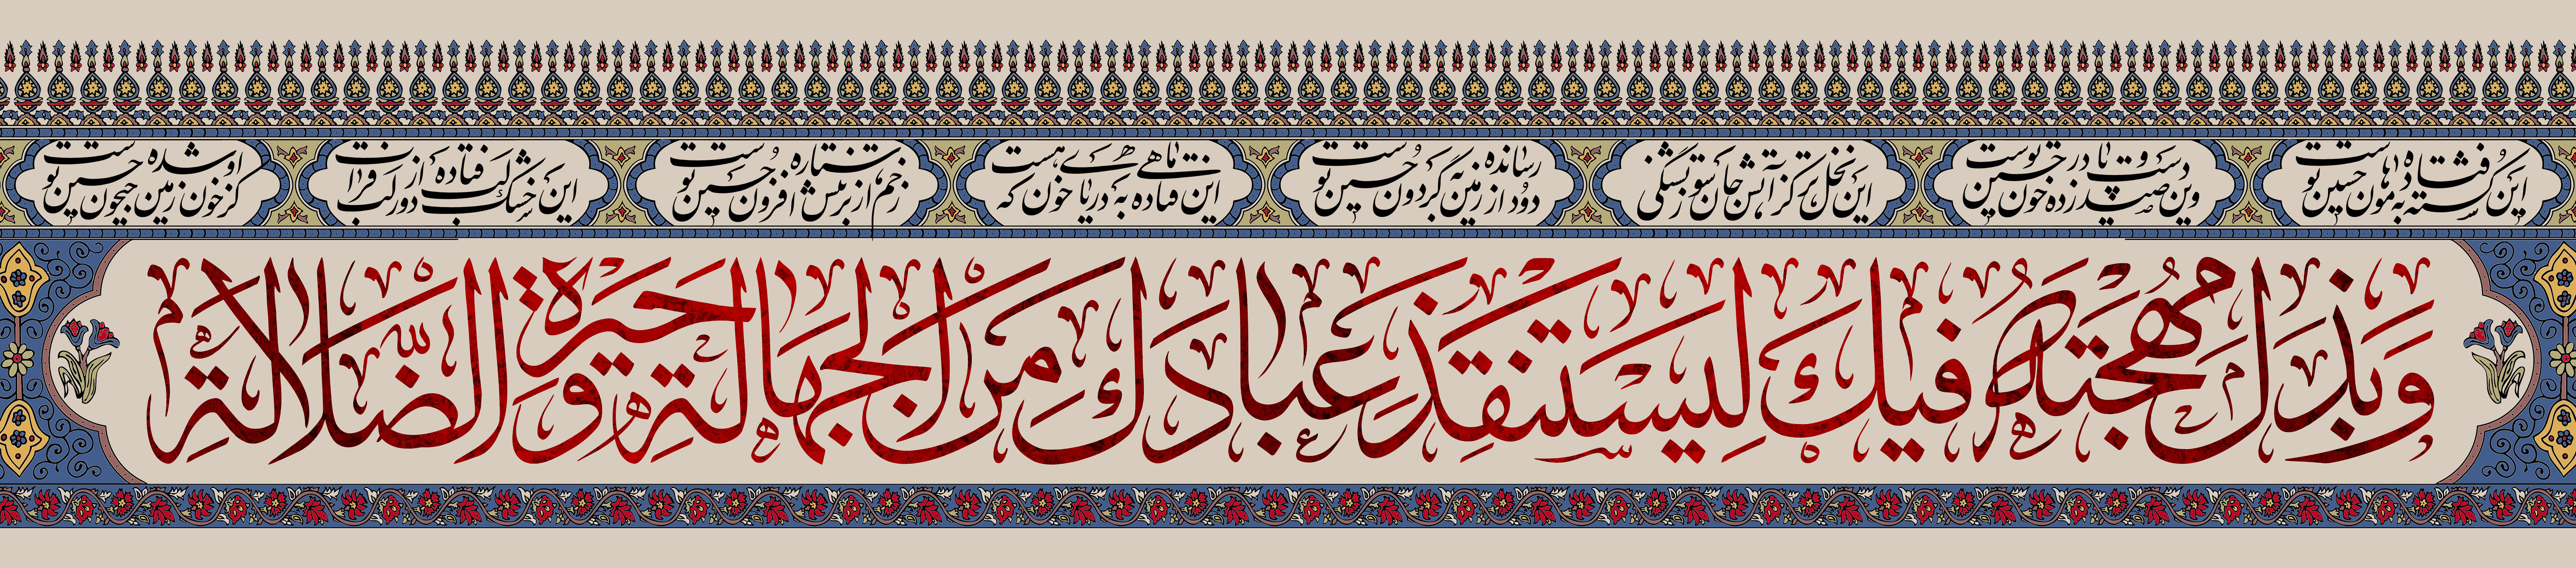 این کشته فتاده به هامون حسین توست
وین صید دست و پا زده در خون حسین توست
این نخل تر کز آتش جان سوز تشنگی
دود از زمین رسانده به گردون حسین توست
این ماهی فتاده به دریای خون که هست
زخم از ستاره بر تنش افزون حسین توست
این خشک لب فتاده دور از لب فرات
کز خون او زمین شده جیحون حسین توست
وَبَذَلَ مُهجَتَهُ فیكَ لِیَستَنقِذَ عِبادَكَ مِنَ الجَهالَةِ وَ حَیرَةِ الضَّلالَةِ